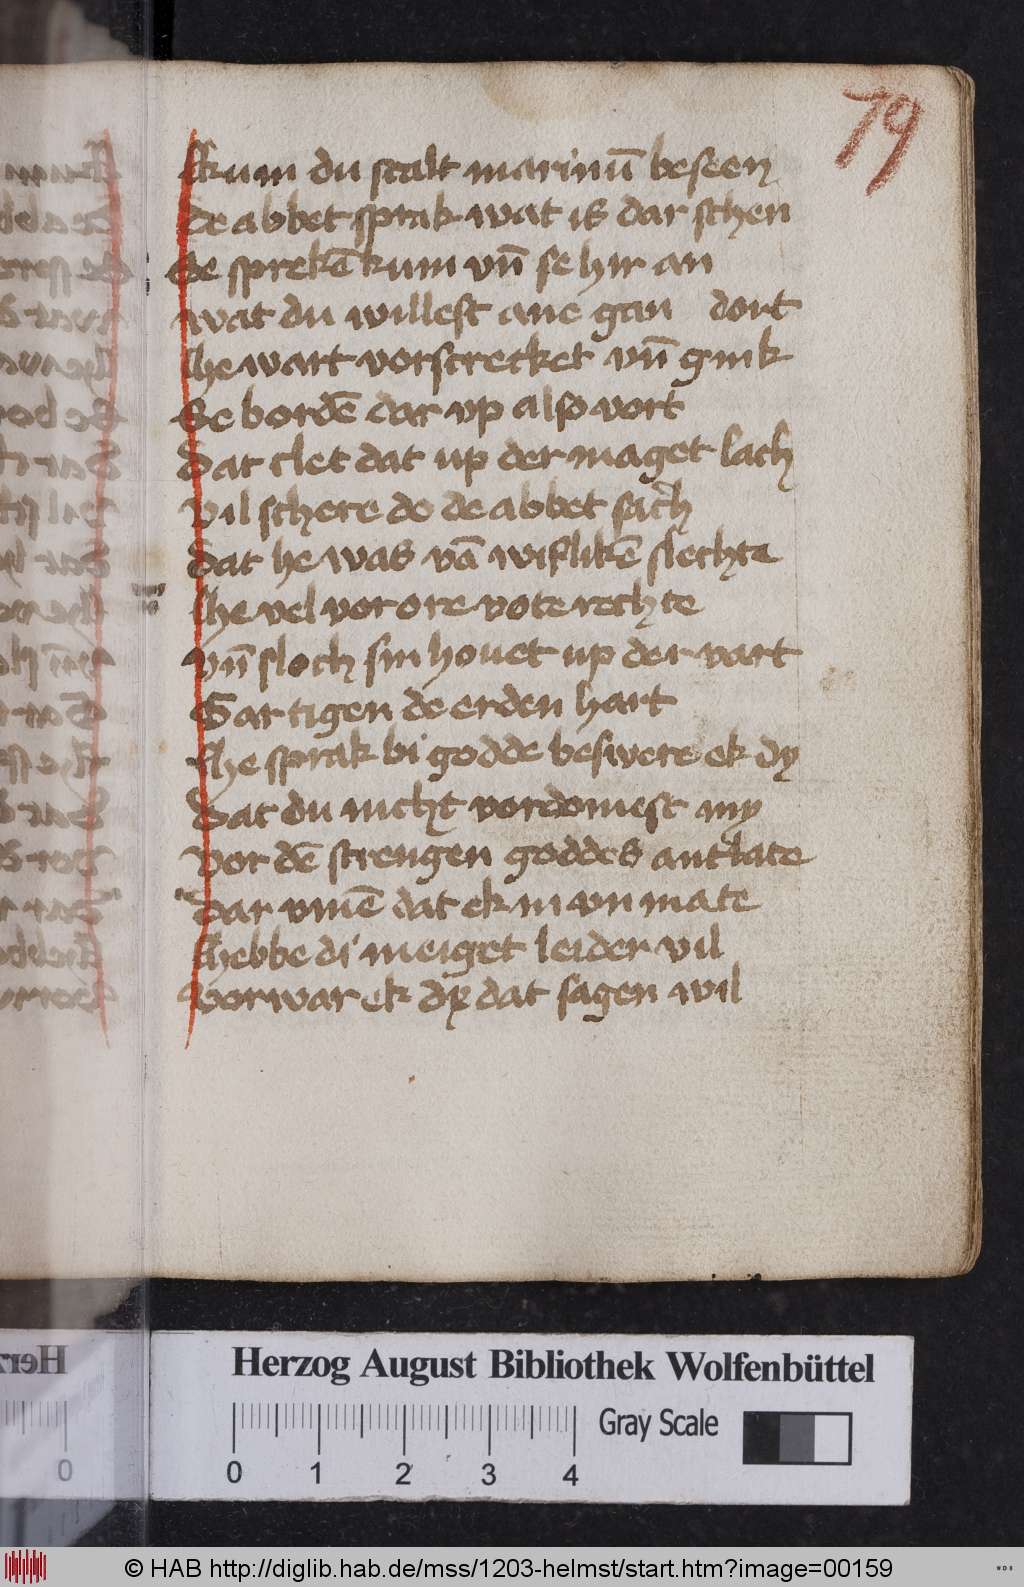 79
Kum du scalt marinū beseen
de abbet sprak wat is dar schen
Se sprekē kum vn̄ se hir an
wat du willest ane gan dort
he wart vorscrecket vn̄ gink
Se bordē dar vp also vort
Dat clet dat up der maget lach
vil schere do de abbet sach
dat he was vā wiflikē slechte
he vel vor ore vote rechte
vn̄ sloch sin houet up der vart
Gar tigen de erden hart
he sprak bi godde beswere ek dy
Dat du nicht vordomest my
vor dē strengen goddes antlate
Dar vmē dat ek in vnmate
hebbe di meiget leider vil
vorwar ek dy dat sagen wil
Herzog August Bibliothek Wolfenbüttel
0 1 2 3 4 Gray Scale
© HAB http://diglib.hab.de/mss/1203-helmst/start.htm?image=00159